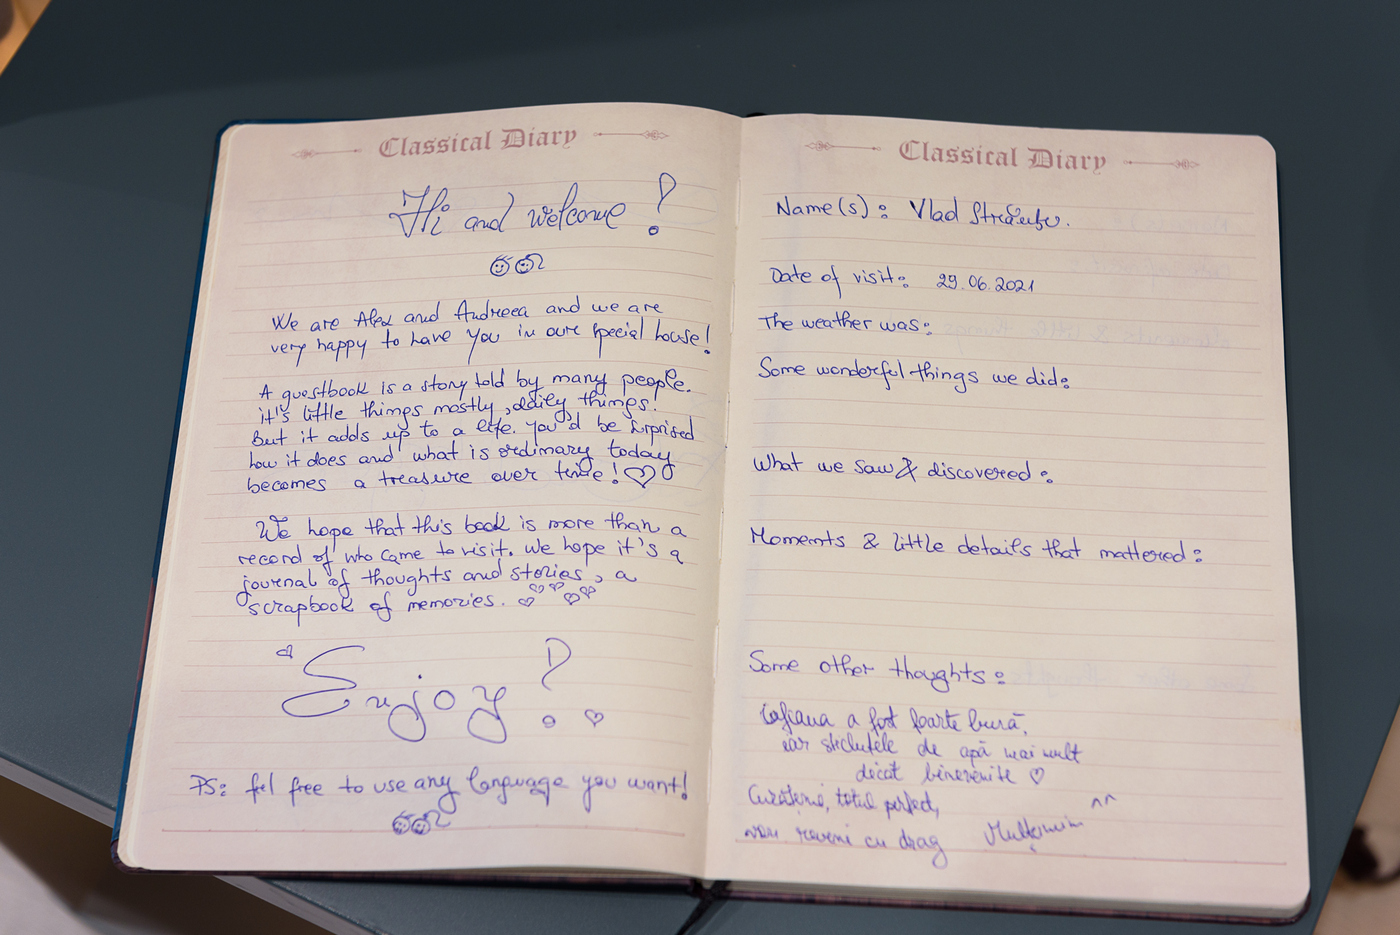 Classical Diary
Hi and welcome!
We are Alex and Andreea and we are
very happy to have you in our special house!
A guestbook is a story told by many people.
it's little things mostly, daily things.
But it adds up to a life. you'd be surprised
how it does and what is ordinary today
becomes a treasure over time!
We hope that this book is more than a
record of who came to visit. We hope it's a
journal of thoughts and stories, a
scrapbook of memories.
Enjoy!
PS: feel free to use any language you want!
Classical Diary
Name(s): Vlad
Date of visit: 29.06.2021
The weather was:
Some wonderful things we did:
What we saw & discovered:
Moments & little details that mattered:
Some other thoughts:
a fost foarte bună,
iar sticluțele de apă mai mult
decât binevenite
Curățenie, totul perfect,
vom reveni cu drag Mulțumim ^^